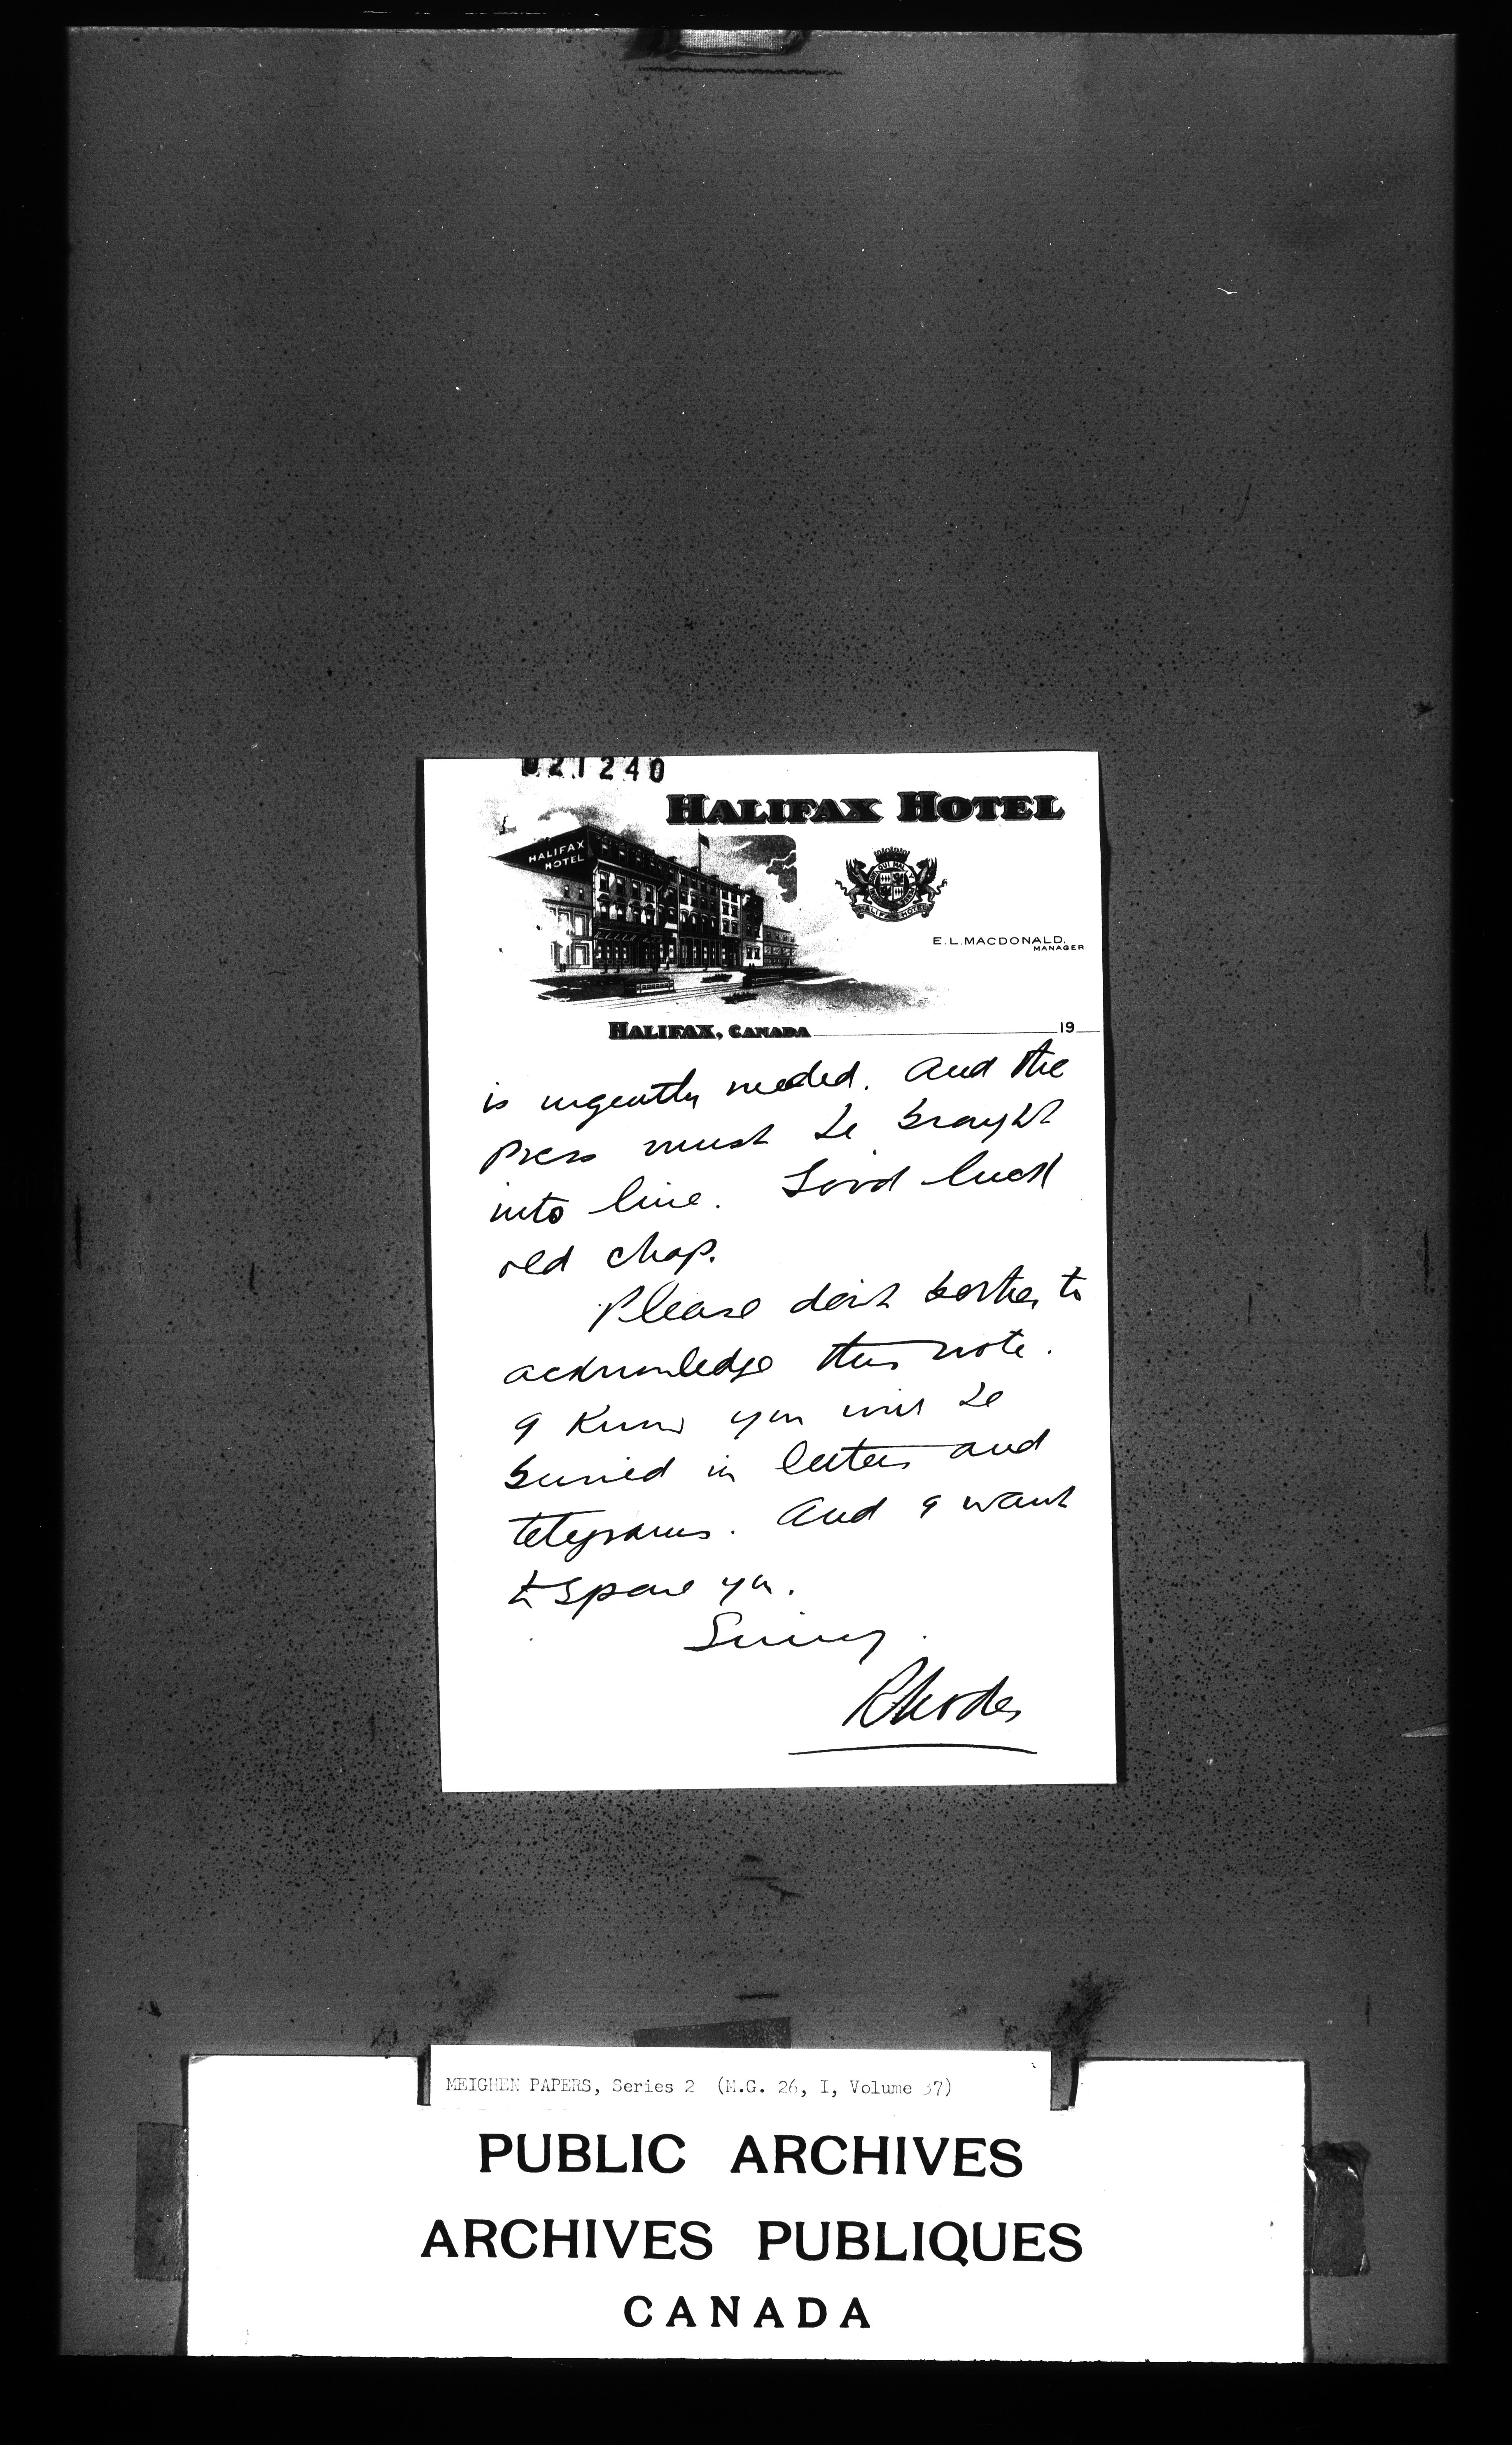 021240
HALIFAX HOTEL
HALIFAX
HOTEL
HALIFAX HOTEL
E.L. MACDONALD,
MANAGER
HALIFAX, CANADA 19
is urgently needed. And the
press must be brought
into line. Good luck
old chap.
Please don't bother to
acknowledge this note.
I know you will be
buried in letters and
telegrams. And I want
to spare you.
Sincy.
Rhodes
MEIGHEN PAPERS, Series 2 (M.G. 26, I, Volume 37)
PUBLIC ARCHIVES
ARCHIVES PUBLIQUES
CANADA